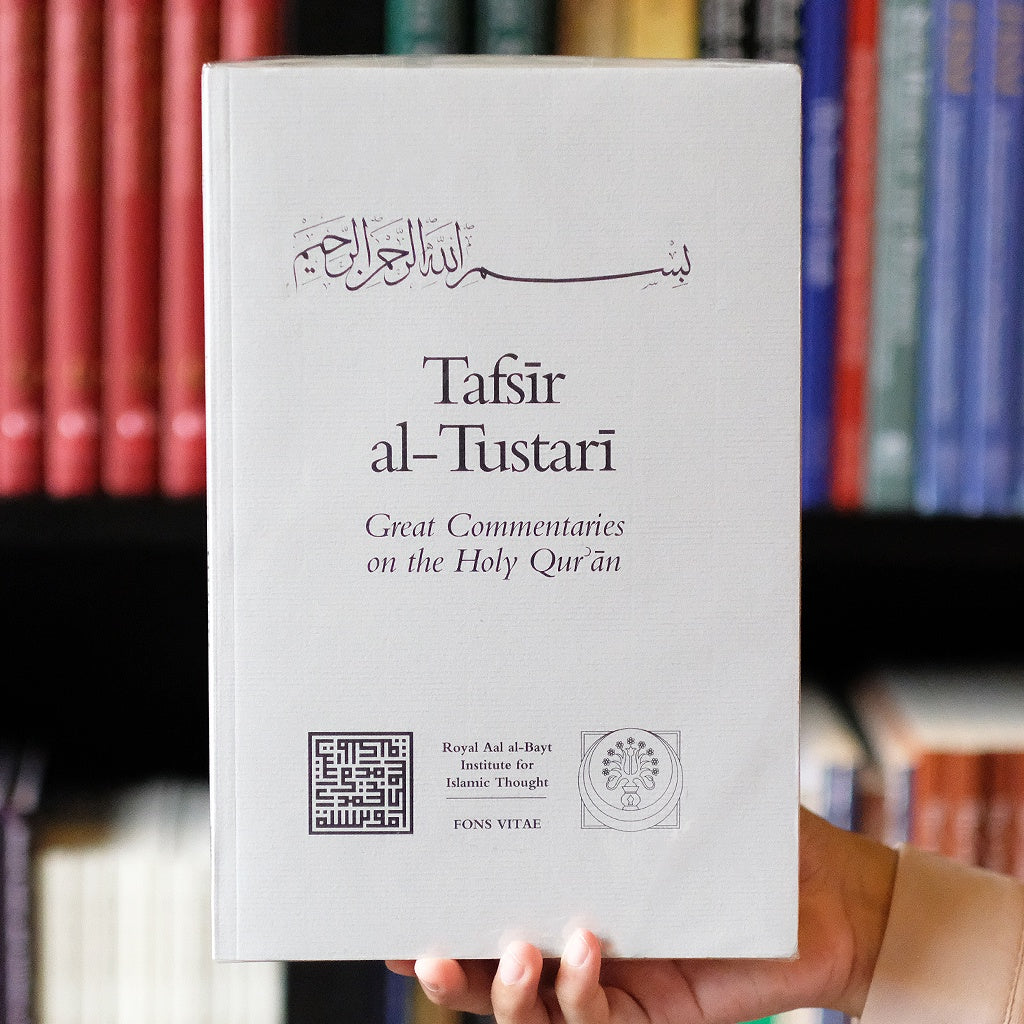 بسم الله الرحمن الرحيم
Tafsīr
al–Tustarī
Great Commentaries
on the Holy Qurʾān
Royal Aal al-Bayt
Institute for
Islamic Thought
FONS VITAE